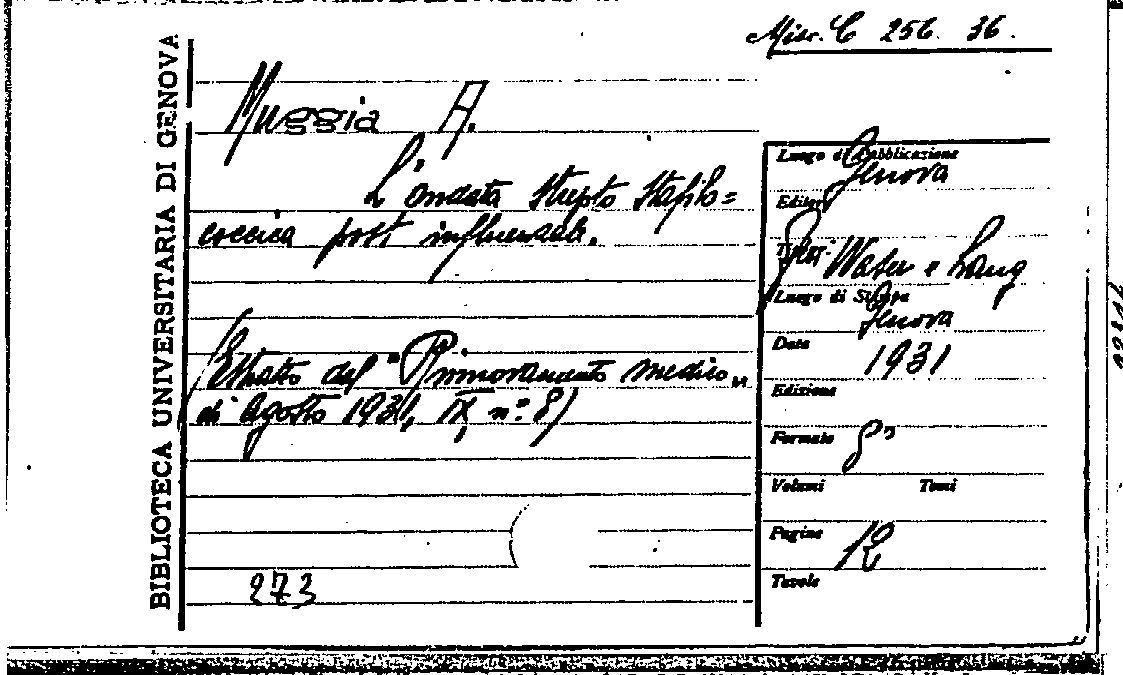 Misc. C 256. 36.
BIBLIOTECA UNIVERSITARIA DI GENOVA
Muggia A.
L'ondata strepto stafilo=
coccica post influenzale.
(Estratto dal "Rinnovamento medico„
di Agosto 1931, IX, n.° 8)
273
Luogo di Pubblicazione
Genova
Editore
Tip. Waser e Lang
Luogo di Stampa
Genova
Data 1931
Edizione
Formato 8°
Volumi Tomi
Pagine 12
Tavole